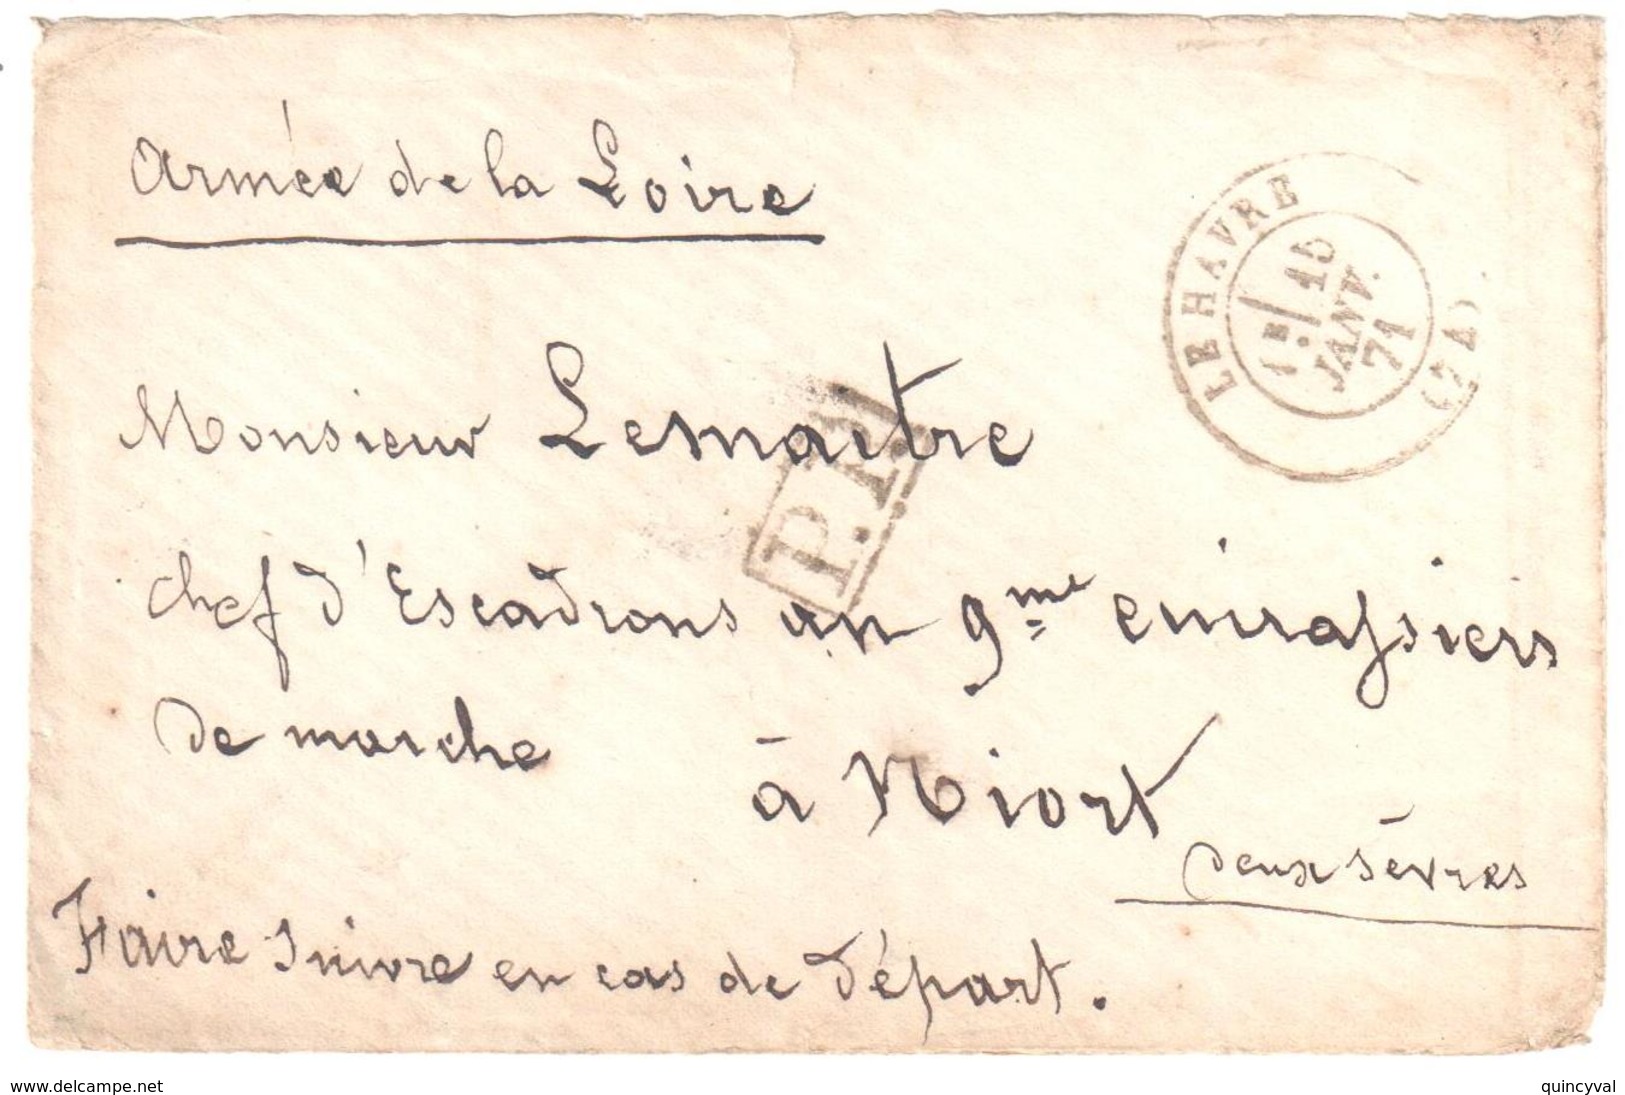 Armée de la Loire
LE HAVRE
15
JANV.
71
(74)
Monsieur Lemaitre
P.P.
chef d'Escadrons au 9me cuirassiers
de marche
à Niort
deux sèvres
Faire suivre en cas de départ.
www.delcampe.net
quincyval